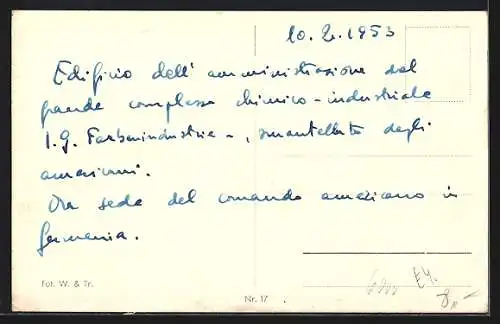 10.2.1953
Edificio dell'amministrazione del
grande complesso chimico-industriale
I.G. Farbenindustrie -, smantellata dagli
americani.
Ora sede del comando americano in
Germania.
E4.
Fot. W. & Tr.
Nr. 17